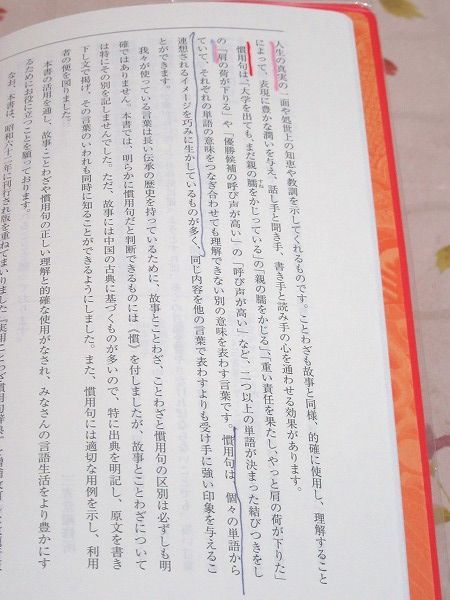 人生の真実の一面や処世上の知恵や教訓を示してくれるものです。ことわざも故事と同様、的確に使用し、理解すること
によって、表現に豊かな潤いを与え、話し手と聞き手、書き手と読み手の心を通わせる効果があります。
慣用句は、「大学を出ても、まだ親の臑をかじっている」の「親の臑をかじる」、「重い責任を果たし、やっと肩の荷が下りた」
の「肩の荷が下りる」や「優勝候補の呼び声が高い」の「呼び声が高い」など、二つ以上の単語が決まった結びつきをし
ていて、それぞれの単語の意味をつなぎ合わせても理解できない別の意味を表わす言葉です。慣用句は、個々の単語から
連想されるイメージを巧みに生かしているものが多く、同じ内容を他の言葉で表わすよりも受け手に強い印象を与えるこ
とができます。
我々が使っている言葉は長い伝承の歴史を持っているために、故事とことわざ、ことわざと慣用句の区別は必ずしも明
確ではありません。本書では、明らかに慣用句だと判断できるものには〈慣〉を付しましたが、故事とことわざについて
は特にその別を記しませんでした。ただ、故事には中国の古典に基づくものが多いので、特に出典を明記し、原文を書き
下し文で掲げ、その言葉のいわれも同時に知ることができるようにしました。また、慣用句には適切な用例を示し、利用
者の便を図りました。
本書の活用を通し、故事ことわざや慣用句の正しい理解と的確な使用がなされ、みなさんの言語生活をより豊かにす
るためにお役に立つことを願っております。
なお、本書は、昭和六十二年に刊行され版を重ねてまいりました『実用ことわざ慣用句辞典』を